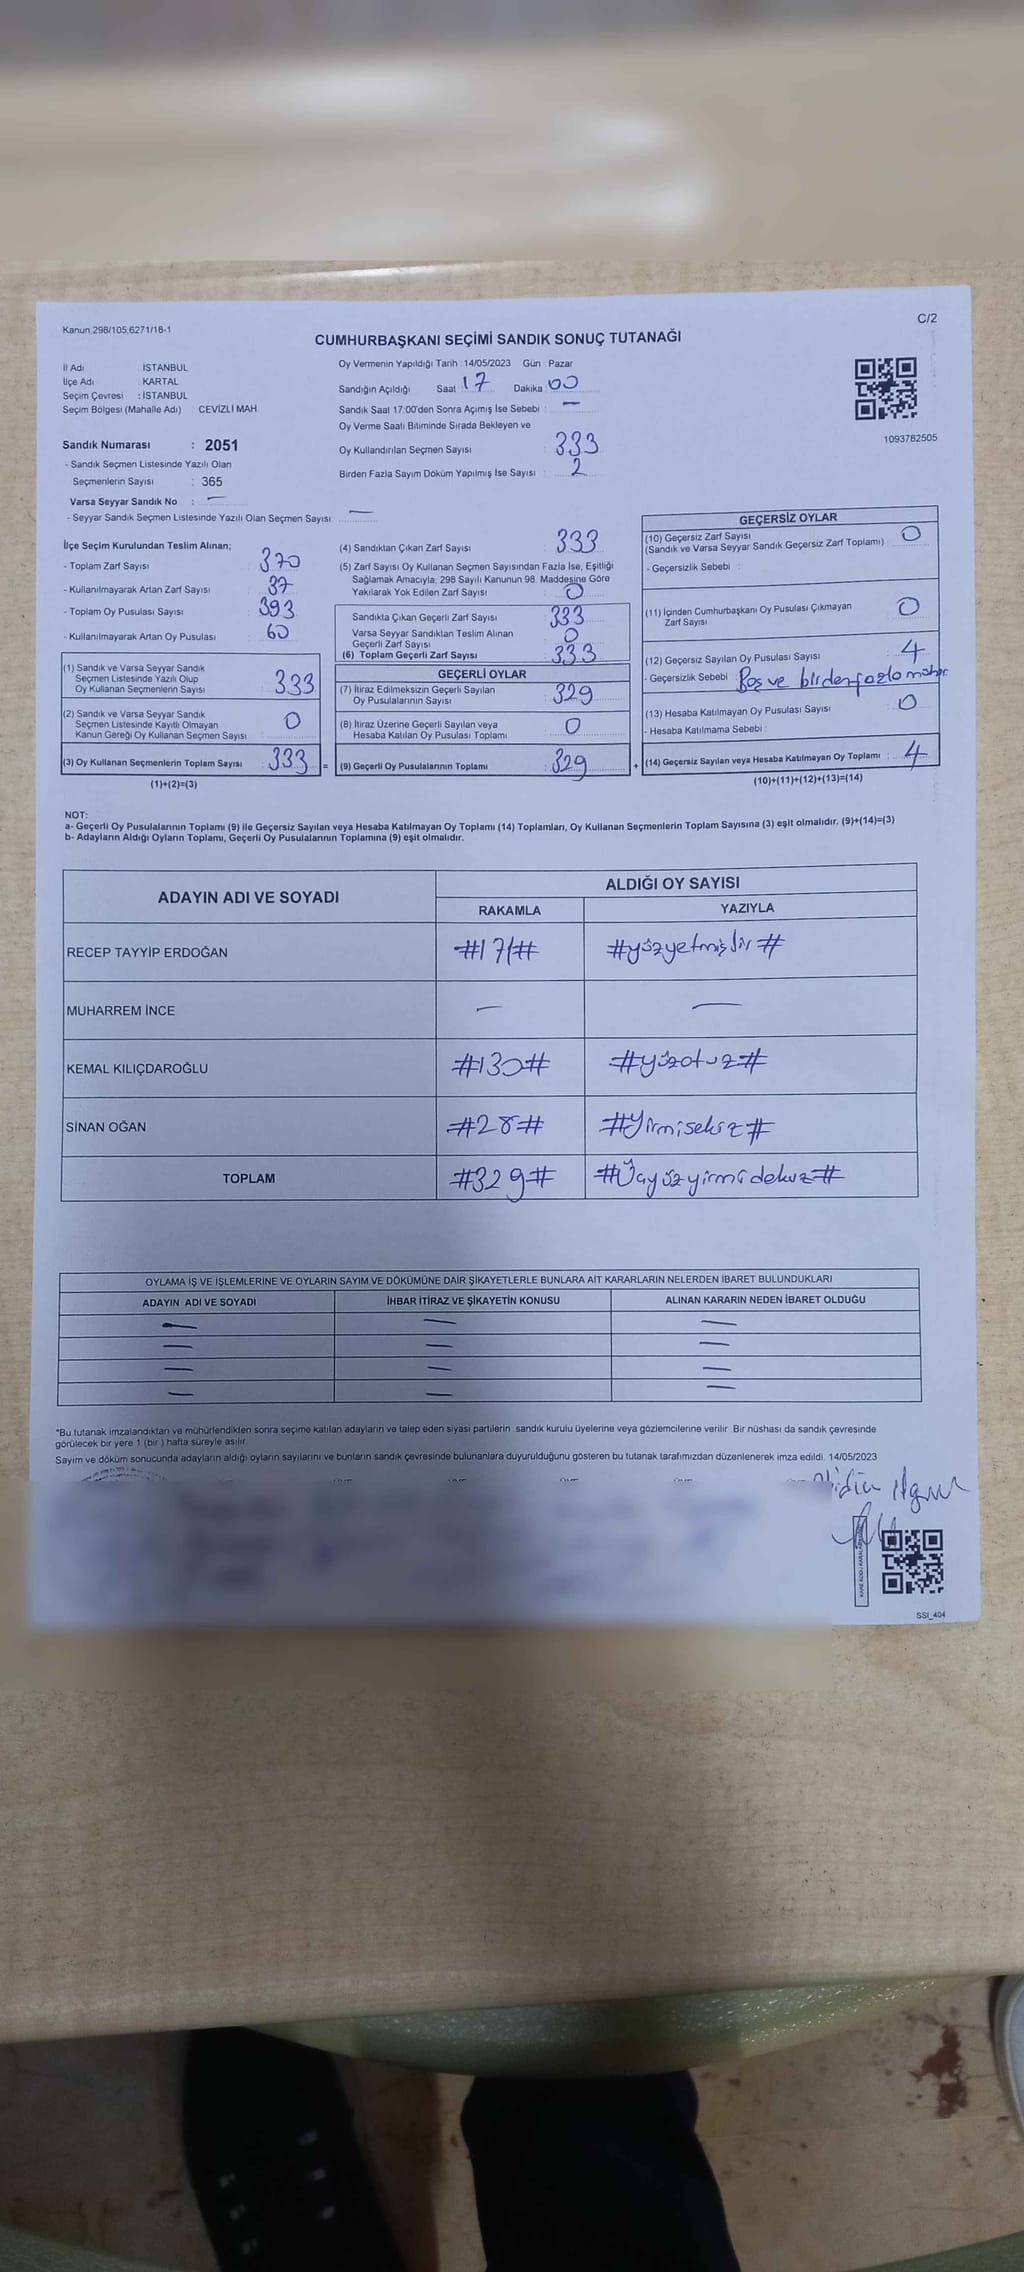 Kanun 298/105,6271/18-1
C/2
CUMHURBAŞKANI SEÇİMİ SANDIK SONUÇ TUTANAĞI
İl Adı İSTANBUL
İlçe Adı KARTAL
Seçim Çevresi : İSTANBUL
Seçim Bölgesi (Mahalle Adı) CEVİZLİ MAH
Sandık Numarası : 2051
- Sandık Seçmen Listesinde Yazılı Olan
Seçmenlerin Sayısı : 365
Varsa Seyyar Sandık No : —
- Seyyar Sandık Seçmen Listesinde Yazılı Olan Seçmen Sayısı —
Oy Vermenin Yapıldığı Tarih :14/05/2023 Gün : Pazar
Sandığın Açıldığı Saat 17 Dakika 00
Sandık Saat 17:00'den Sonra Açımış İse Sebebi : —
Oy Verme Saati Bitiminde Sırada Bekleyen ve
Oy Kullandırılan Seçmen Sayısı : 333
Birden Fazla Sayım Döküm Yapılmış İse Sayısı : 2
1093782505
İlçe Seçim Kurulundan Teslim Alınan;
- Toplam Zarf Sayısı : 370
- Kullanılmayarak Artan Zarf Sayısı : 37
- Toplam Oy Pusulası Sayısı : 393
- Kullanılmayarak Artan Oy Pusulası : 60
(1) Sandık ve Varsa Seyyar Sandık
Seçmen Listesinde Yazılı Olup
Oy Kullanan Seçmenlerin Sayısı : 333
(2) Sandık ve Varsa Seyyar Sandık
Seçmen Listesinde Kayıtlı Olmayan
Kanun Gereği Oy Kullanan Seçmen Sayısı : 0
(3) Oy Kullanan Seçmenlerin Toplam Sayısı : 333 =
(1)+(2)=(3)
(4) Sandıktan Çıkan Zarf Sayısı : 333
(5) Zarf Sayısı Oy Kullanan Seçmen Sayısından Fazla İse, Eşitliği
Sağlamak Amacıyla, 298 Sayılı Kanunun 98. Maddesine Göre
Yakılarak Yok Edilen Zarf Sayısı : 0
Sandıkta Çıkan Geçerli Zarf Sayısı : 333
Varsa Seyyar Sandıktan Teslim Alınan
Geçerli Zarf Sayısı : 0
(6) Toplam Geçerli Zarf Sayısı : 333
GEÇERLİ OYLAR
(7) İtiraz Edilmeksizin Geçerli Sayılan
Oy Pusulasının Sayısı : 329
(8) İtiraz Üzerine Geçerli Sayılan veya
Hesaba Katılan Oy Pusulası Toplamı : 0
(9) Geçerli Oy Pusulalarının Toplamı : 329 +
GEÇERSİZ OYLAR
(10) Geçersiz Zarf Sayısı
(Sandık ve Varsa Seyyar Sandık Geçersiz Zarf Toplamı) : 0
- Geçersizlik Sebebi :
(11) İçinden Cumhurbaşkanı Oy Pusulası Çıkmayan
Zarf Sayısı : 0
(12) Geçersiz Sayılan Oy Pusulası Sayısı : 4
- Geçersizlik Sebebi : Boş ve birden fazla mühür
(13) Hesaba Katılmayan Oy Pusulası Sayısı : 0
- Hesaba Katılmama Sebebi :
(14) Geçersiz Sayılan veya Hesaba Katılmayan Oy Toplamı : 4
(10)+(11)+(12)+(13)=(14)
NOT:
a- Geçerli Oy Pusulalarının Toplamı (9) ile Geçersiz Sayılan veya Hesaba Katılmayan Oy Toplamı (14) Toplamları, Oy Kullanan Seçmenlerin Toplam Sayısına (3) eşit olmalıdır. (9)+(14)=(3)
b- Adayların Aldığı Oyların Toplamı, Geçerli Oy Pusulalarının Toplamına (9) eşit olmalıdır.
ADAYIN ADI VE SOYADI
ALDIĞI OY SAYISI
RAKAMLA YAZIYLA
RECEP TAYYİP ERDOĞAN #171# #yüzyetmişbir#
MUHARREM İNCE — —
KEMAL KILIÇDAROĞLU #130# #yüzotuz#
SİNAN OĞAN #28# #Yirmisekiz#
TOPLAM #329# #Üçyüzyirmidokuz#
OYLAMA İŞ VE İŞLEMLERİNE VE OYLARIN SAYIM VE DÖKÜMÜNE DAİR ŞİKAYETLERLE BUNLARA AİT KARARLARIN NELERDEN İBARET BULUNDUKLARI
ADAYIN ADI VE SOYADI İHBAR İTİRAZ VE ŞİKAYETİN KONUSU ALINAN KARARIN NEDEN İBARET OLDUĞU
— — —
— — —
— — —
— — —
*Bu tutanak imzalandıktan ve mühürlendikten sonra seçime katılan adayların ve talep eden siyasi partilerin sandık kurulu üyelerine veya gözlemcilerine verilir. Bir nüshası da sandık çevresinde
görülecek bir yere 1 (bir ) hafta süreyle asılır.
Sayım ve döküm sonucunda adayların aldığı oyların sayılarını ve bunların sandık çevresinde bulunanlara duyurulduğunu gösteren bu tutanak tarafımızdan düzenlenerek imza edildi. 14/05/2023
SSI_404